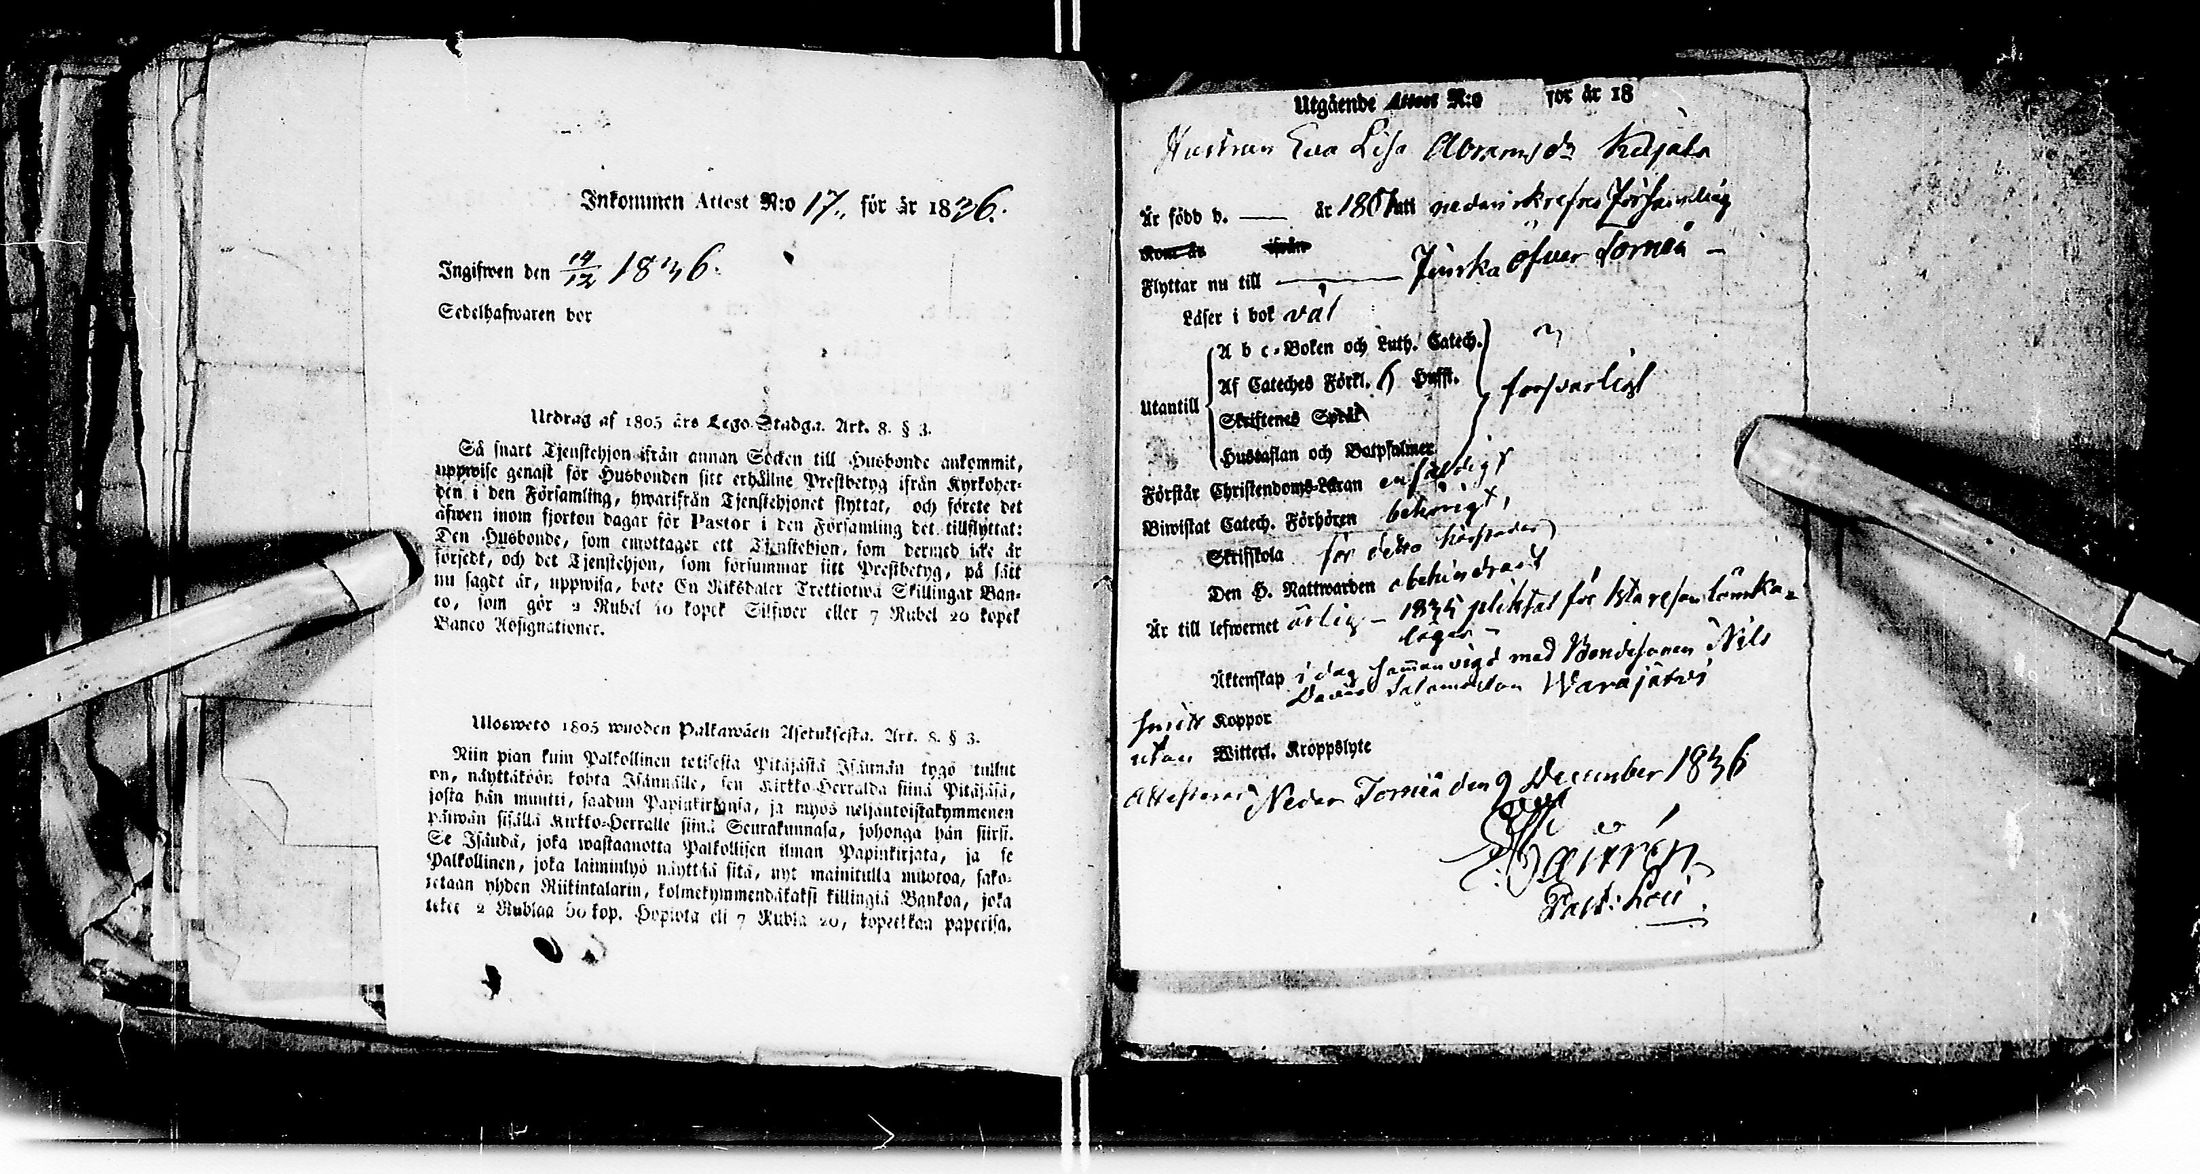 Inkommen Attest N:o 17. för år 1836.
Ingifwen den 14/12 1836.
Sedelhafwaren bor
Utdrag af 1805 års Lego-Stadga. Art. 8. § 3.
Så snart Tjenstehjon ifrån annan Socken till Husbonde ankommit,
uppwise genast för Husbonden sitt erhållne Prestbetyg ifrån Kyrkoher-
den i den Församling, hwarifrån Tjenstehjonet flyttat, och förete det
äfwen inom fjorton dagar för Pastor i den Församling det tillflyttat:
Den Husbonde, som emottager ett Tjenstehjon, som dermed icke är
försedt, och det Tjenstehjon, som försummar sitt Prestbetyg, på sätt
nu sagdt är, uppwisa, bote En Riksdaler Trettiotwå Skillingar Ban-
co, som gör 2 Rubel 10 kopek Silfwer eller 7 Rubel 20 kopek
Banco Assignationer.
Ulosweto 1805 wuoden Palkawäen Asetuksesta. Art. 8. § 3.
Niin pian kuin Palkollinen toisesta Pitäjästä Isännän tygö tullut
on, näyttäköön kohta Isännälle, sen Kirkko-Herralda siinä Pitäjäsä,
josta hän muutti, saadun Papinkirjansa, ja myös neljäntoistakymmenen
päiwän sisällä Kirkko-Herralle siinä Seurakunnasa, johonga hän siirsi.
Se Isändä, joka wastaanotta Palkollisen ilman Papinkirjata, ja se
Palkollinen, joka laiminlyö näyttää sitä, nyt mainitulla muotoa, sako-
tetaan yhden Riikintalarin, kolmekymmendäkaksi killingiä Bankoa, joka
tekee 2 Rublaa 50 kop. Hopiota eli 7 Rubla 20, kopeekkaa paperisa.
Utgående Attest N:o för år 18
Hustrun Eva Lisa Abramsdr
Är född d. — år 1807 uti nedanskrefne Församling
Kom år ifrån
Flyttar nu till — öfver Torneå —
Läser i bok väl
Utantill
A b c-Boken och Luth. Catech.
Af Cateches Förkl. Hufst.
Skriftenes Språk
Hustaflan och Botpsalmer
försvarligt
Förstår Christendoms-Läran enfäldigt
Biwistat Catech. Förhören behörigt,
Skriftskola för detta
Den H. Nattwarden obehindradt
Är till lefwernet ärlig — 1835 pliktat för
läger —
Äktenskap i dag sammanvigd med Bondesonen Nils
Salomonson Warajärvi
haft Koppor
utan Witterl. Kroppslyte
Attesterar Neder Torneå den 9 December 1836